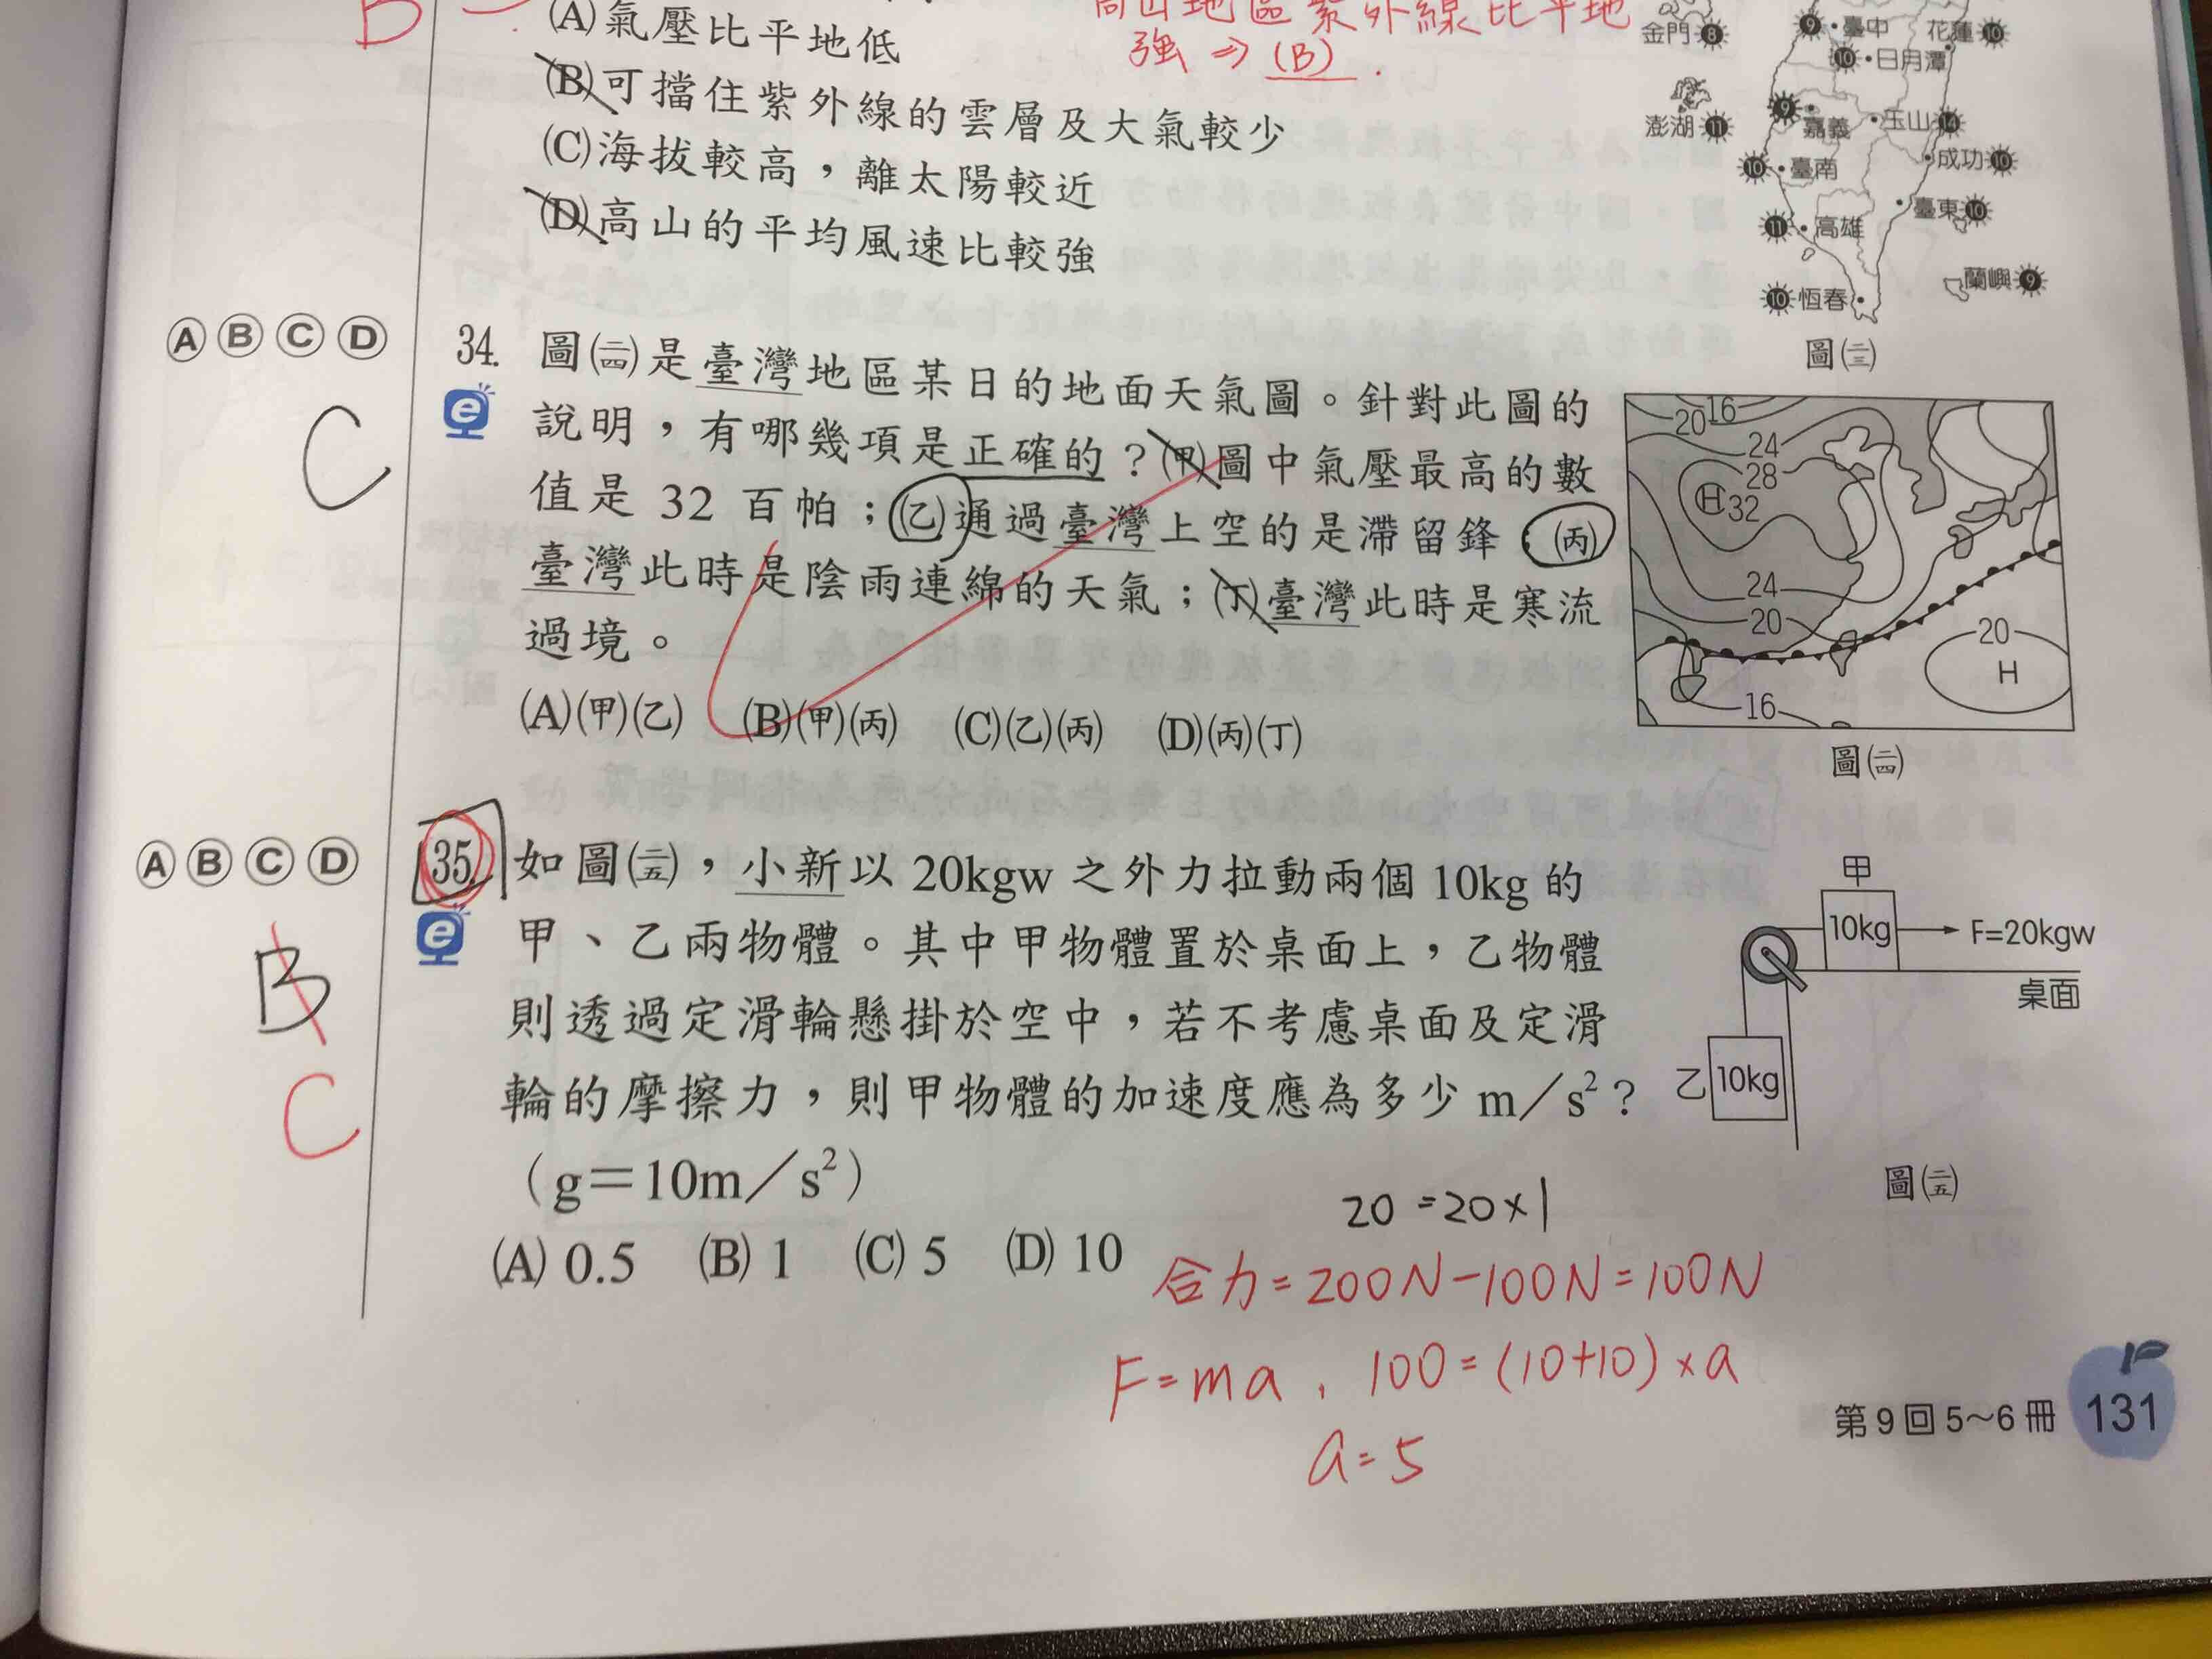 B
(A)氣壓比平地低
(B)可擋住紫外線的雲層及大氣較少
(C)海拔較高，離太陽較近
(D)高山的平均風速比較強
高山地區紫外線比平地
強⇒(B).
金門 8
9 臺中
花蓮 10
10 日月潭
澎湖 11
9 嘉義
玉山 14
10 臺南
成功 10
11 高雄
臺東 10
10 恆春
蘭嶼 9
圖(二三)
Ⓐ Ⓑ Ⓒ Ⓓ
C
34. 圖(二四)是臺灣地區某日的地面天氣圖。針對此圖的
說明，有哪幾項是正確的？(甲)圖中氣壓最高的數
值是 32 百帕；(乙)通過臺灣上空的是滯留鋒；(丙)
臺灣此時是陰雨連綿的天氣；(丁)臺灣此時是寒流
過境。
(A)(甲)(乙) (B)(甲)(丙) (C)(乙)(丙) (D)(丙)(丁)
20 16
24
28
H 32
24
20
20
H
16
圖(二四)
Ⓐ Ⓑ Ⓒ Ⓓ
B
C
35. 如圖(二五)，小新以 20kgw 之外力拉動兩個 10kg 的
甲、乙兩物體。其中甲物體置於桌面上，乙物體
則透過定滑輪懸掛於空中，若不考慮桌面及定滑
輪的摩擦力，則甲物體的加速度應為多少 m／s²？
（g＝10m／s²）
(A) 0.5 (B) 1 (C) 5 (D) 10
甲
10kg
F=20kgw
桌面
乙 10kg
圖(二五)
20 =20×1
合力=200N-100N=100N
F=ma , 100=(10+10)×a
a=5
第 9 回 5～6 冊 131